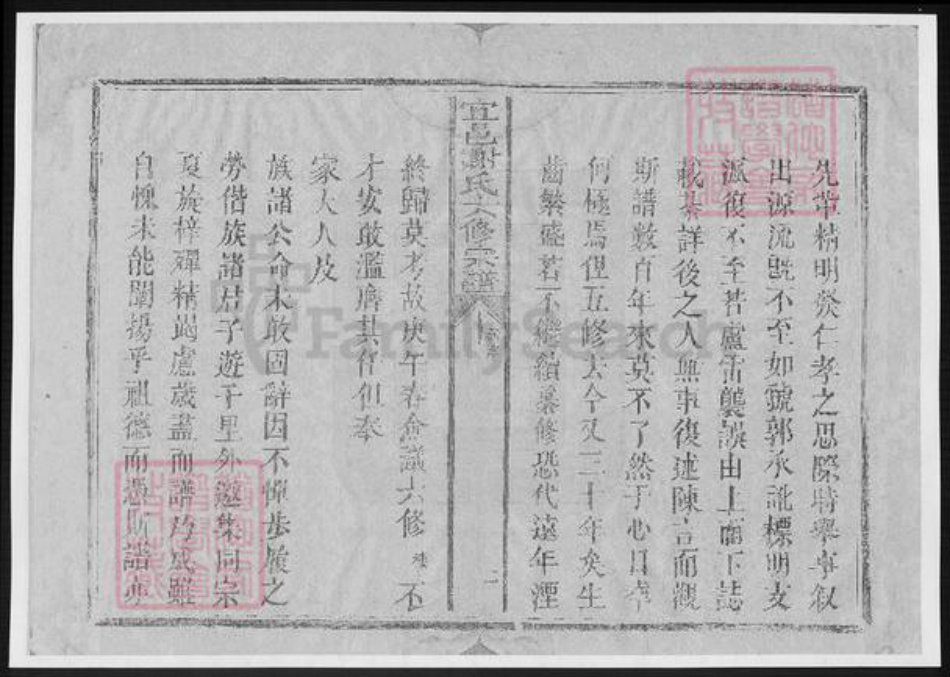 先帝精明發仁孝之思際時舉事叙
出源流旣不至如虢郭承訛標明支
派復不至若盧雷襲誤由上而下誌
載綦詳後之人無事復述陳言而觀
斯譜數百年來莫不了然于心目幸
何極焉但五修去今又三十年矣生
齒繁盛若不繼續纂修恐代遠年湮
宜邑謝氏六修宗譜
二
終歸莫考故庚午春僉議六修 不
才安敢濫膺其任但奉
家大人及
族諸公命未敢固辭因不憚步履之
勞偕族諸君子遊千里外邀集同宗
戛旋梓殫精竭慮歲盡而譜乃成雖
自愧未能闡揚乎祖德而憑斯譜亦
FamilySearch